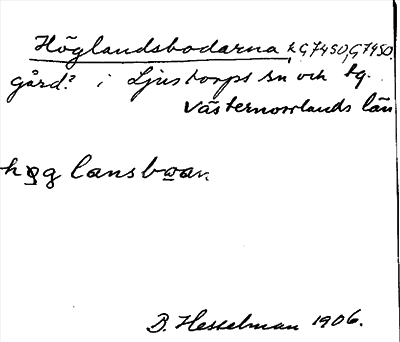 Höglandsbodarna, k G7450, G7450.
gård? i Ljustorps sn och tg.
Västernorrlands län
høg lansbωan.
B. Hesselman 1906.